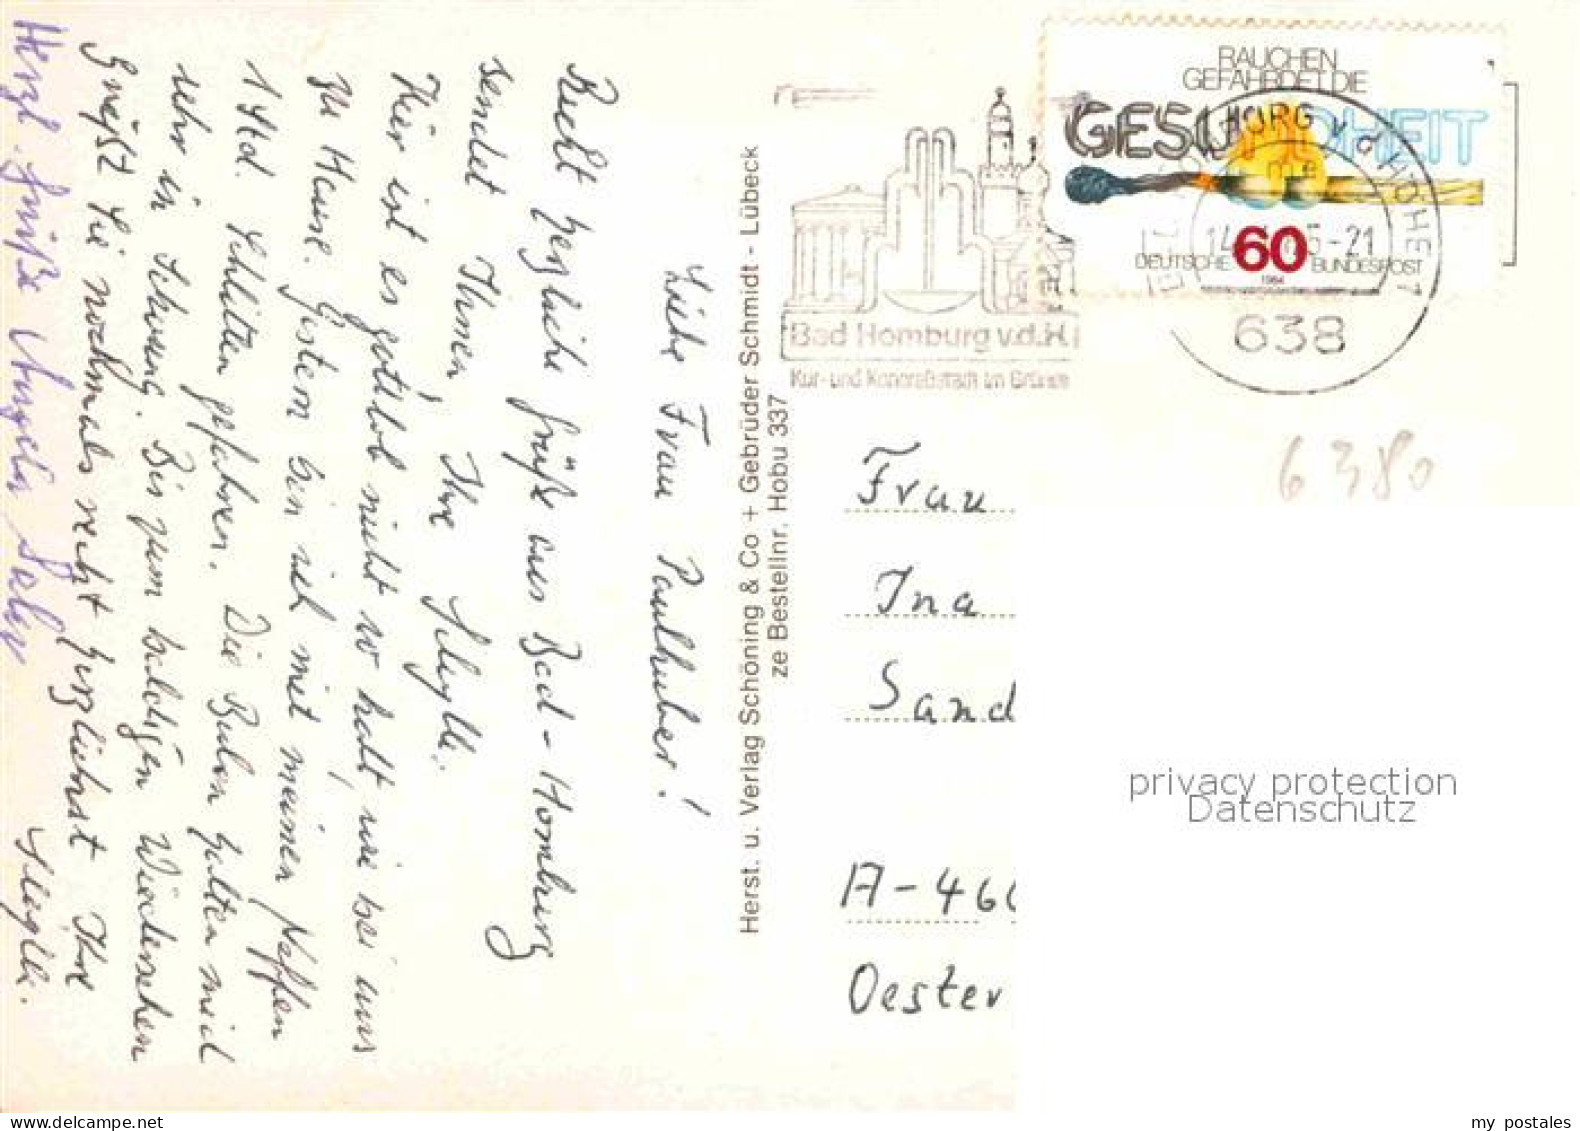 Liebe Frau Paulhuber!
Recht herzliche Grüße aus Bad-Homburg
sendet Ihnen, Ihre Sibylle.
Hier ist es gottlob nicht so kalt, wie bei uns
zu Hause. Gestern bin ich mit meinen Neffen
1 Std. Schlitten gefahren. Die Buben halten mich
sehr in Schwung. Bis zum baldigen Wiedersehen
grüßt Sie nochmals recht herzlichst Ihre
Sibylle.
Herzl. Grüße Angela
Herst. u. Verlag Schöning & Co + Gebrüder Schmidt - Lübeck
ze Bestellnr. Hobu 337
Bad Homburg v.d.H
Kur- und Kongreßstadt im Grünen
RAUCHEN
GEFÄHRDET DIE
GESUNDHEIT
DEUTSCHE 60 BUNDESPOST
1984
BURG v d HÖHE 1
14 5-21
638
6380
Frau
Ina
Sand
A-46
Oester
privacy protection
Datenschutz
my postales